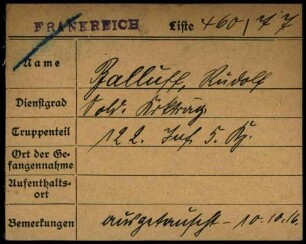 FRANKREICH Liste 460/77
Name Balluff, Rudolf
Dienstgrad Sold.
Truppenteil 122. Inf. 5. K.
Ort der Ge-
fangennahme
Aufenthalts-
ort
Bemerkungen ausgetauscht - 10.10.16